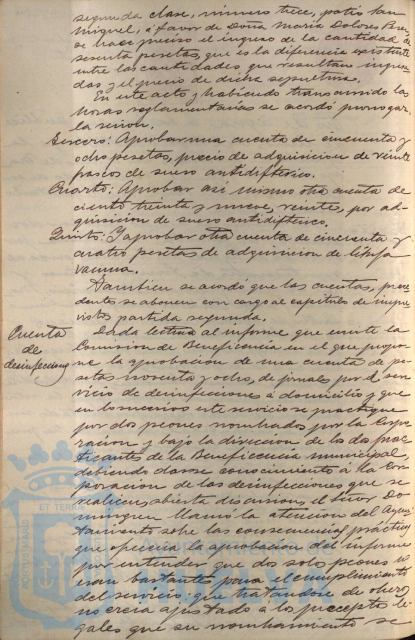 segunda clase, número trece, patio San
Miguel, á favor de Doña María Dolores
se hace preciso el ingreso de la cantidad de
sesenta pesetas, que es la diferencia existente
entre las cantidades que resultan ingresadas
y el precio de dicha sepultura.
En este acto y habiendo transcurrido las
horas reglamentarias se acordó prorrogar
la sesión.
Tercero: Aprobar una cuenta de cincuenta y
ocho pesetas, precio de adquisición de veinte
frascos de suero antidiftérico.
Cuarto: Aprobar asi mismo otra cuenta de
ciento treinta y nueve, veinte, por ad-
quisición de suero antidiftérico.
Quinto: Y aprobar otra cuenta de cincuenta y
cuatro pesetas de adquisición de linfa
vacuna.
Tambien se acordó que las cuentas, prece-
dentes se abonen con cargo al capítulo de impre-
vistos partida segunda.
Cuenta
de
desinfecciones
Dada lectura al informe que emite la
Comision de Beneficencia en el que propo-
ne la aprobación de una cuenta de pe-
setas noventa y ocho, de jornales por el ser-
vicio de desinfecciones á domicilio y que
en lo sucesivo este servicio se practique
por dos peones nombrados por la Corpo-
racion y bajo la direccion de los dos prac-
ticantes de la Beneficencia municipal,
debiendo darse conocimiento á la Cor-
poracion de las desinfecciones que se
realicen, abierta discusion, el Señor Do-
minguez llamó la atencion del Ayun-
tamiento sobre las consecuencias prácticas
que ofrecería la aprobación del informe
por entender que dos solo peones no
eran bastantes para el cumplimiento
del servicio: que tratándose de obreros
no creia ajustado á los preceptos le-
gales que su nombramiento se
ET TERRA